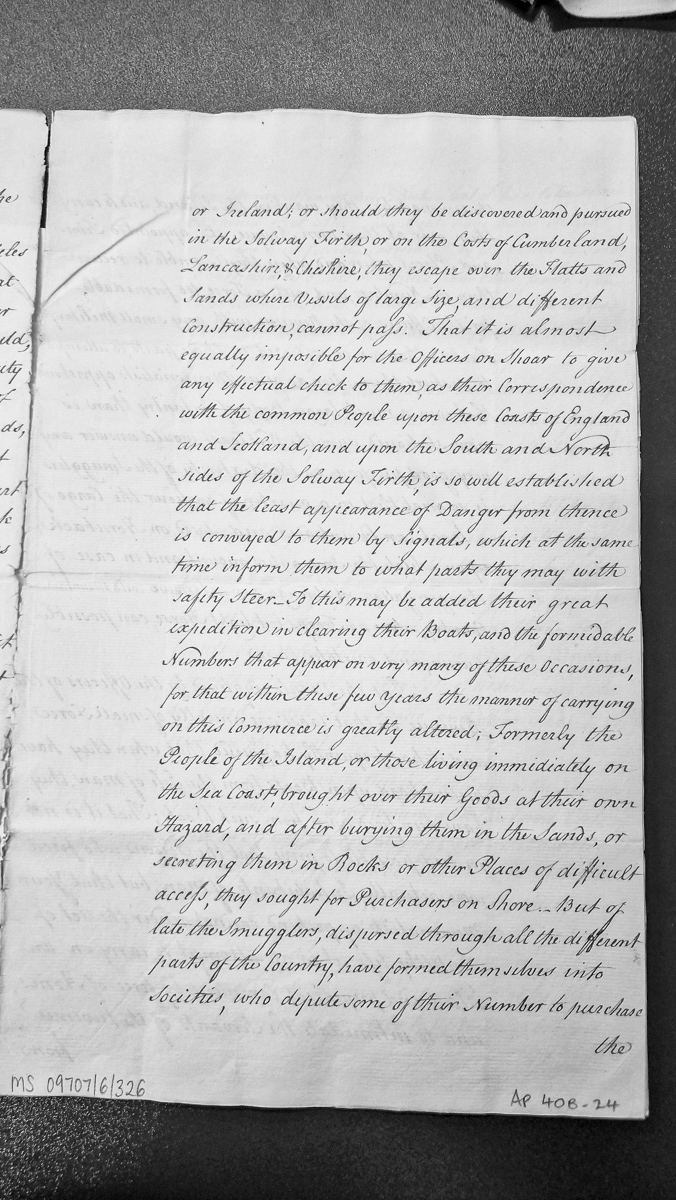 or Ireland; or should they be discovered and pursued
in the Solway Firth, or on the Costs of Cumberland,
Lancashire, & Cheshire, they escape over the Flatts and
Sands where Vessels of large Size, and different
Construction, cannot pass. That it is almost
equally imposible for the Officers on Shoar to give
any effectual check to them, as their Correspondence
with the common People upon these Coasts of England
and Scotland, and upon the South and North
sides of the Solway Firth, is so well established
that the least appearance of Danger from thence
is conveyed to them by Signals, which at the same
time inform them to what parts they may with
safety steer_ To this may be added their great
expedition in clearing their Boats, and the formidable
Numbers that appear on very many of these Occasions,
for that within these few Years the manner of carrying
on this Commerce is greatly altered; Formerly the
People of the Island, or those living immidiately on
the Sea Coast, brought over their Goods at their own
Hazard, and after burying them in the Sands, or
secreting them in Rocks or other Places of difficult
access, they sought for Purchasers on Shore_ But of
late the Smugglers, dispersed through all the different
parts of the Country, have formed themselves into
Societies, who depute some of their Number to purchase
the
MS 09707/6/326
AP 40B-24